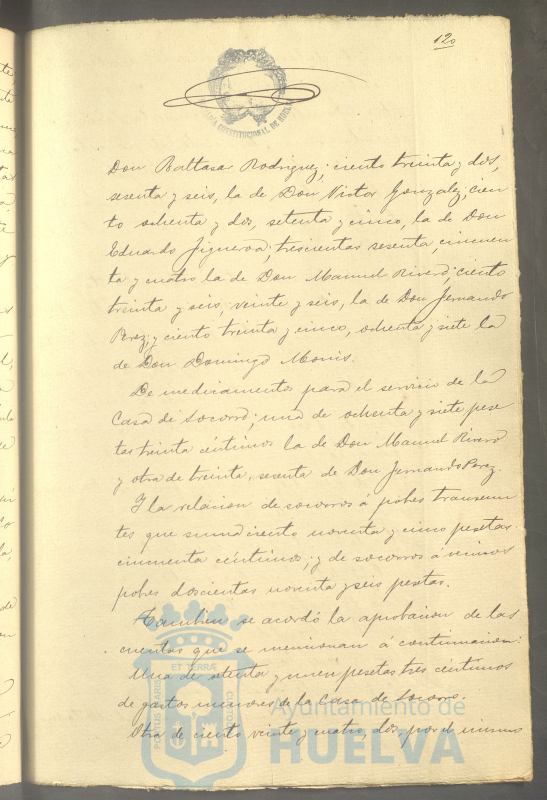 120
Don Baltasar Rodriguez; ciento treinta y dos,
sesenta y seis, la de Don Victor Gonzalez; cien
to ochenta y dos, setenta y cinco, la de Don
Eduardo Figueroa; trescientas sesenta, cincuen
ta y cuatro la de Don Manuel Rivero; ciento
treinta y seis, veinte y seis, la de Don Fernando
Perez; y ciento treinta y cinco, ochenta y siete la
de Don Domingo Monis.
De medicamentos para el servicio de la
Casa de Socorro; una de ochenta y siete pese
tas treinta céntimos la de Don Manuel Rivero
y otra de treinta, sesenta de Don Fernando Perez.
Y la relacion de socorros á pobres transeun
tes que suma ciento noventa y cinco pesetas
cincuenta céntimos; y de socorros á vecinos
pobres doscientas noventa y seis pesetas.
Tambien se acordó la aprobacion de las
cuentas que se mencionan á continuacion:
Una de y pesetas tres céntimos
de gastos menores de la Casa de Socorro.
Otra de ciento veinte y cuatro, dos, por el mismo
PORTUS MARIS ET TERRAE CUSTODIA
Ayuntamiento de
HUELVA